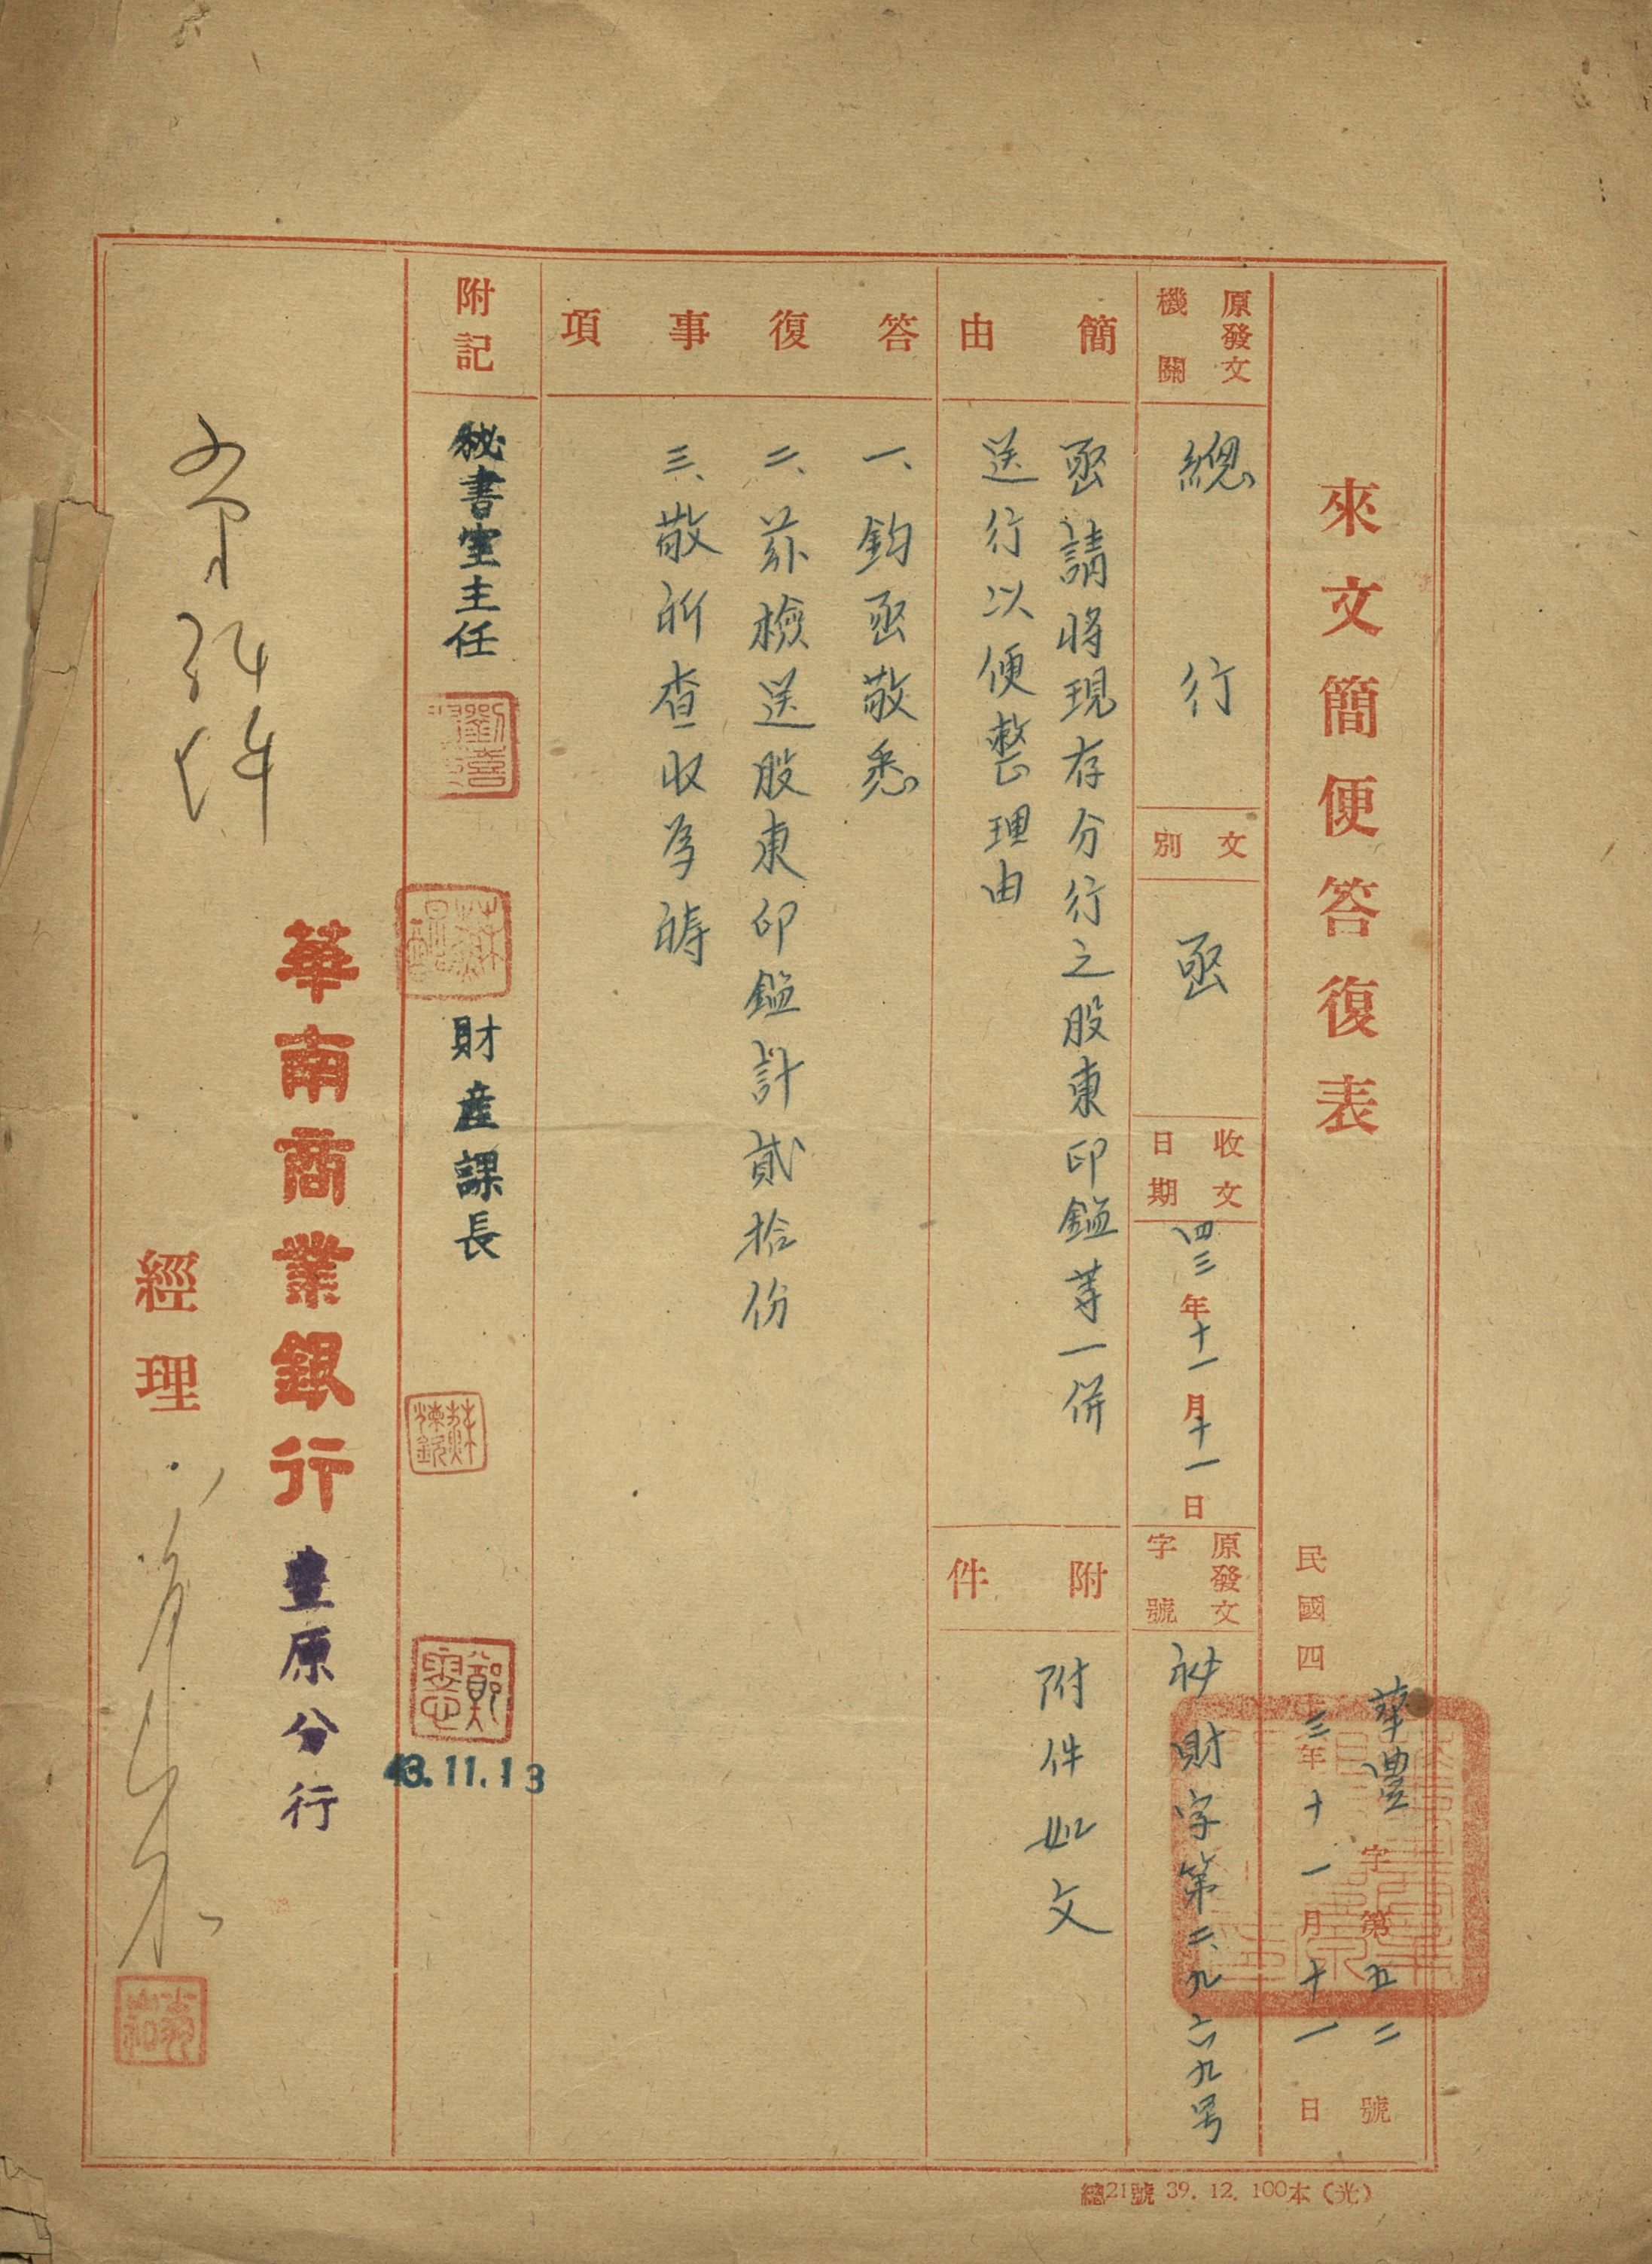 來文簡便答復表
華豐字第五二號
民國四三年十一月十一日
原發文機關
總行
文別
函
收文日期
四三年十一月十一日
原發文字號
秘財字第二、九六九号
簡由
函請將現存分行之股東印鑑等一併
送行以便整理由
附件
附件如文
答復事項
一、鈞函敬悉
二、茲檢送股東印鑑計貳拾份
三、敬祈查收為禱
附記
秘書室主任
財產課長
43.11.13
華南商業銀行豐原分行
經理
總21號 39. 12. 100本(光)